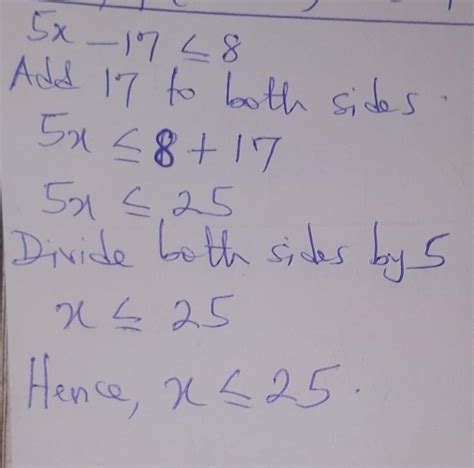 5x - 17 ≤ 8
Add 17 to both sides.
5x ≤ 8 + 17
5x ≤ 25
Divide both sides by 5
x ≤ 25
Hence, x ≤ 25.